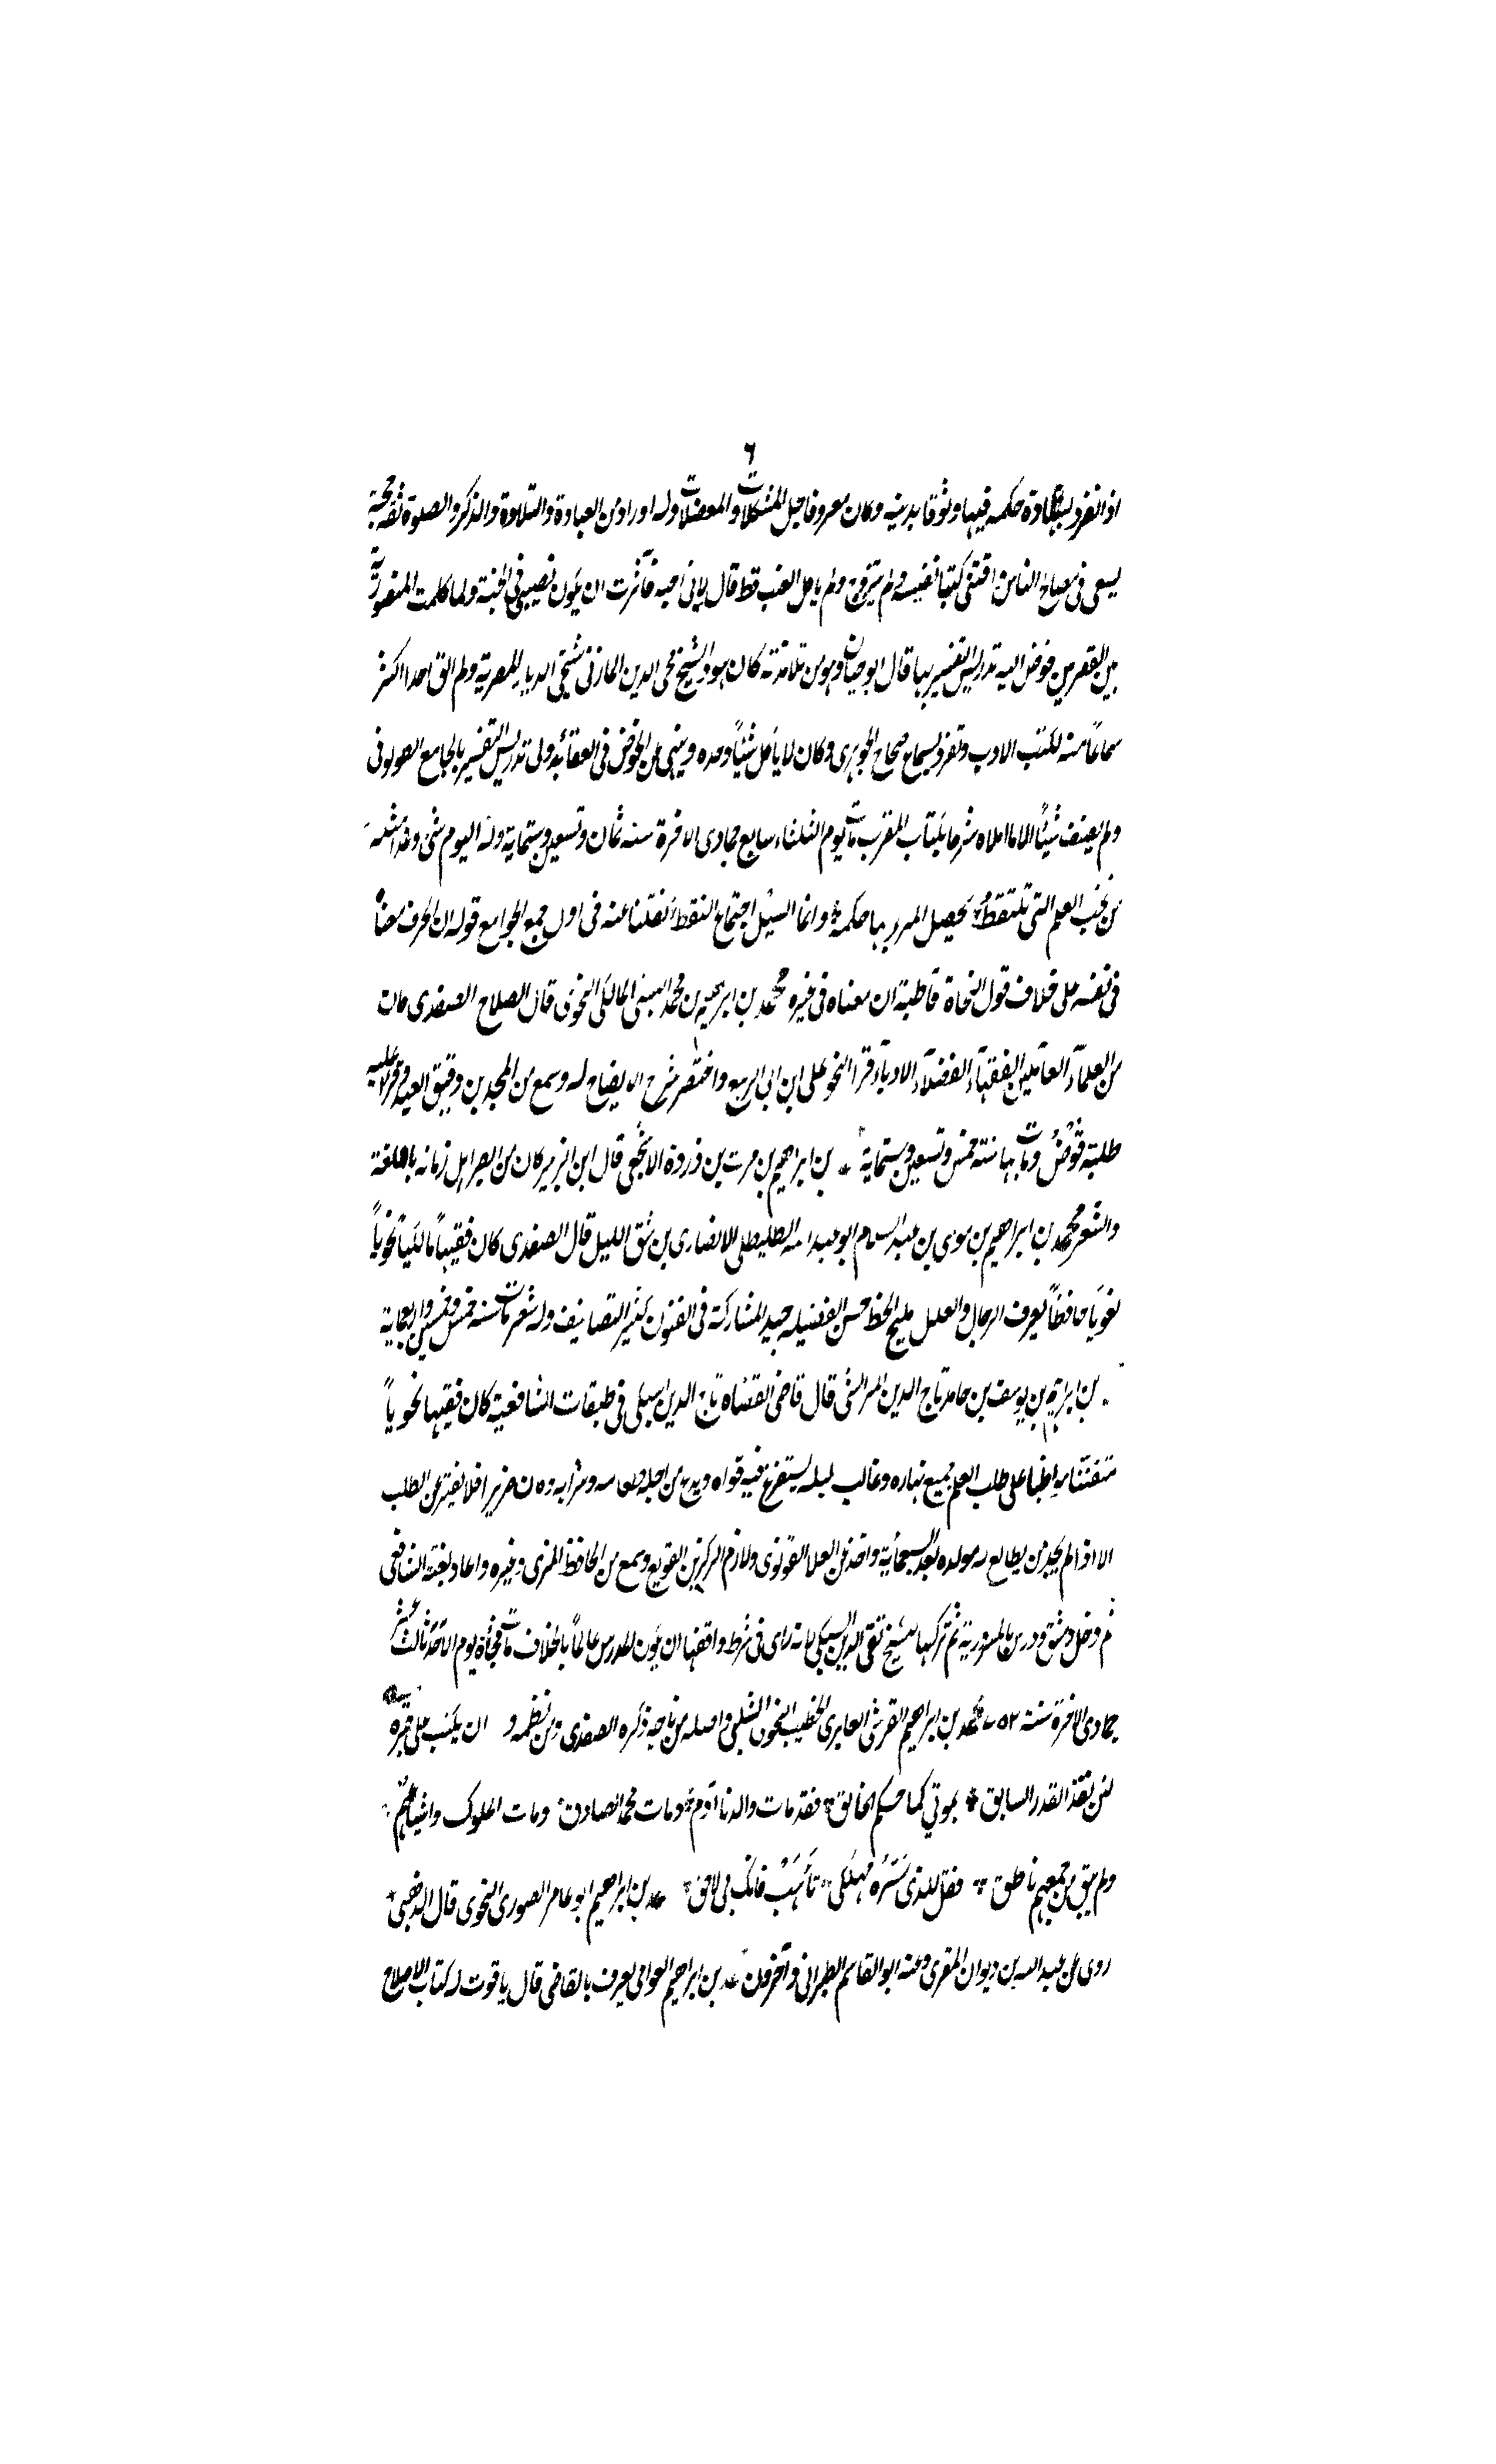 ٦
اذا انفرد بشهادة حكمه فيها وثوقا بدينه وكان معروفا بحل المشكلات والمعضلات وله اوراد من العبادة والتلاوة والذكر والصلوة ثقة حجة
يسعى فى مصالح الناس اقتنى كتبا نفيسة ولم يتزوج ولم ياكل العنب قط قال لانى احبه فآثرت ان يكون نصيبى فى الجنة ولما كملت المنصورية
بين القصرين فوض اليه تدريس التفسير بها قال ابو حيان وهو من تلامذته كان هو والشيخ محى الدين المازنى شيخى الديار المصرية ولم الق احدا اكثر
سماعاً منه لكتب الادب وتفرد بسماع صحاح الجوهرى وكان لا يأكل شيئاً وحده وينهى عن الخوض فى العقائد ولى تدريس التفسير بالجامع الطولونى
ولم يصنف شيئاً الا ما املاه شرحا بكتاب المقرب مات يوم الثلثاء سابع جمادى الاخرة سنه ثمان وتسعين وستماية وله اليوم شئ وغدا مثله
من نخب العلم التى تلتقط يحصل المرء بها حكمة وانما السيل اجتماع النقط نقلنا عنه فى اول جمع الجوامع قوله ان الحرف معناه
فى نفسه على خلاف قول النحاة قاطبة ان معناه فى غيره محمد بن ابراهيم بن محمد السبتى المالكى النحوى قال الصلاح الصفدى كان
من العلمآء العاملين الفقهآء الفضلآء الادبآء قرا النحو على ابن ابى الربيع واختصر شرح الايضاح له وسمع من المجد بن دقيق العيد وقرا عليه
طلبة قوص ومات بها سنة خمس وتسعين وستماية بن ابراهيم بن مرت بن ذروة الاشجعى قال ابن الزبير كان من ابصر اهل زمانه باللغة
والشعر محمد بن ابراهيم بن موسى بن عبد السلام ابو عبد الله الطليطلى الانصارى بن شق الليل قال الصفدى كان فقيهاً مالكياً نحوياً
لغوياً حافظاً يعرف الرجال والعلل مليح الخط حسن الفضيله جيد المشاركة فى الفنون كثير التصانيف وله شعر مات سنه خمس وخمسين واربعماية
بن ابراهيم بن يوسف بن حامد تاج الدين المراكشى قال قاضى القضاه تاج الدين السبكى فى طبقات الشافعية كان فقيها نحوياً
متفننا مواظبا على طلب العلم جميع نهاره وغالب ليله يستفرغ فيه قواه ويدع من اجله طعامه وشرابه وكان ضريرا فلا يفتر عن الطلب
الا اذا لم يجد من يطالع له مولده بعد السبعمائة واخذ عن العلا القونوى ولازم الركن بن القويع وسمع من الحافظ المزى وغيره واعاد بقبة الشافعى
ثم دخل دمشق ودرس بالمسرورية ثم تركها للشيخ تقى الدين السبكى لانه راى فى شرط واقفها ان يكون المدرس عالماً بالخلاف مات فجأة يوم الاحد ثالث عشر
جمادى الاخرة سنة ٧٥٢ محمد بن ابراهيم القرشى العامرى الخطيب النحوى الشلبى واصله من باجه ذكره الصفدى ومن نظمه و ان يكتب على قبره
لئن نفذ القدر السابق بموتي كما حكم الخالق فقد مات والدنا ادم ومات محمد الصادق ومات الملوك واشياعهم
ولم يبق من جمعهم ناطق فقل للذى سَرّه مهلكى تأهب فانك بى لاحق محمد بن ابراهيم ابو عامر الصورى النحوى قال الذهبى
روى عن عبد الله بن ذكوان المقرى وعنه ابو القاسم الطبرانى وآخرون محمد بن ابراهيم العوامى يعرف بالقاضى قال ياقوت له كتاب الاصلاح